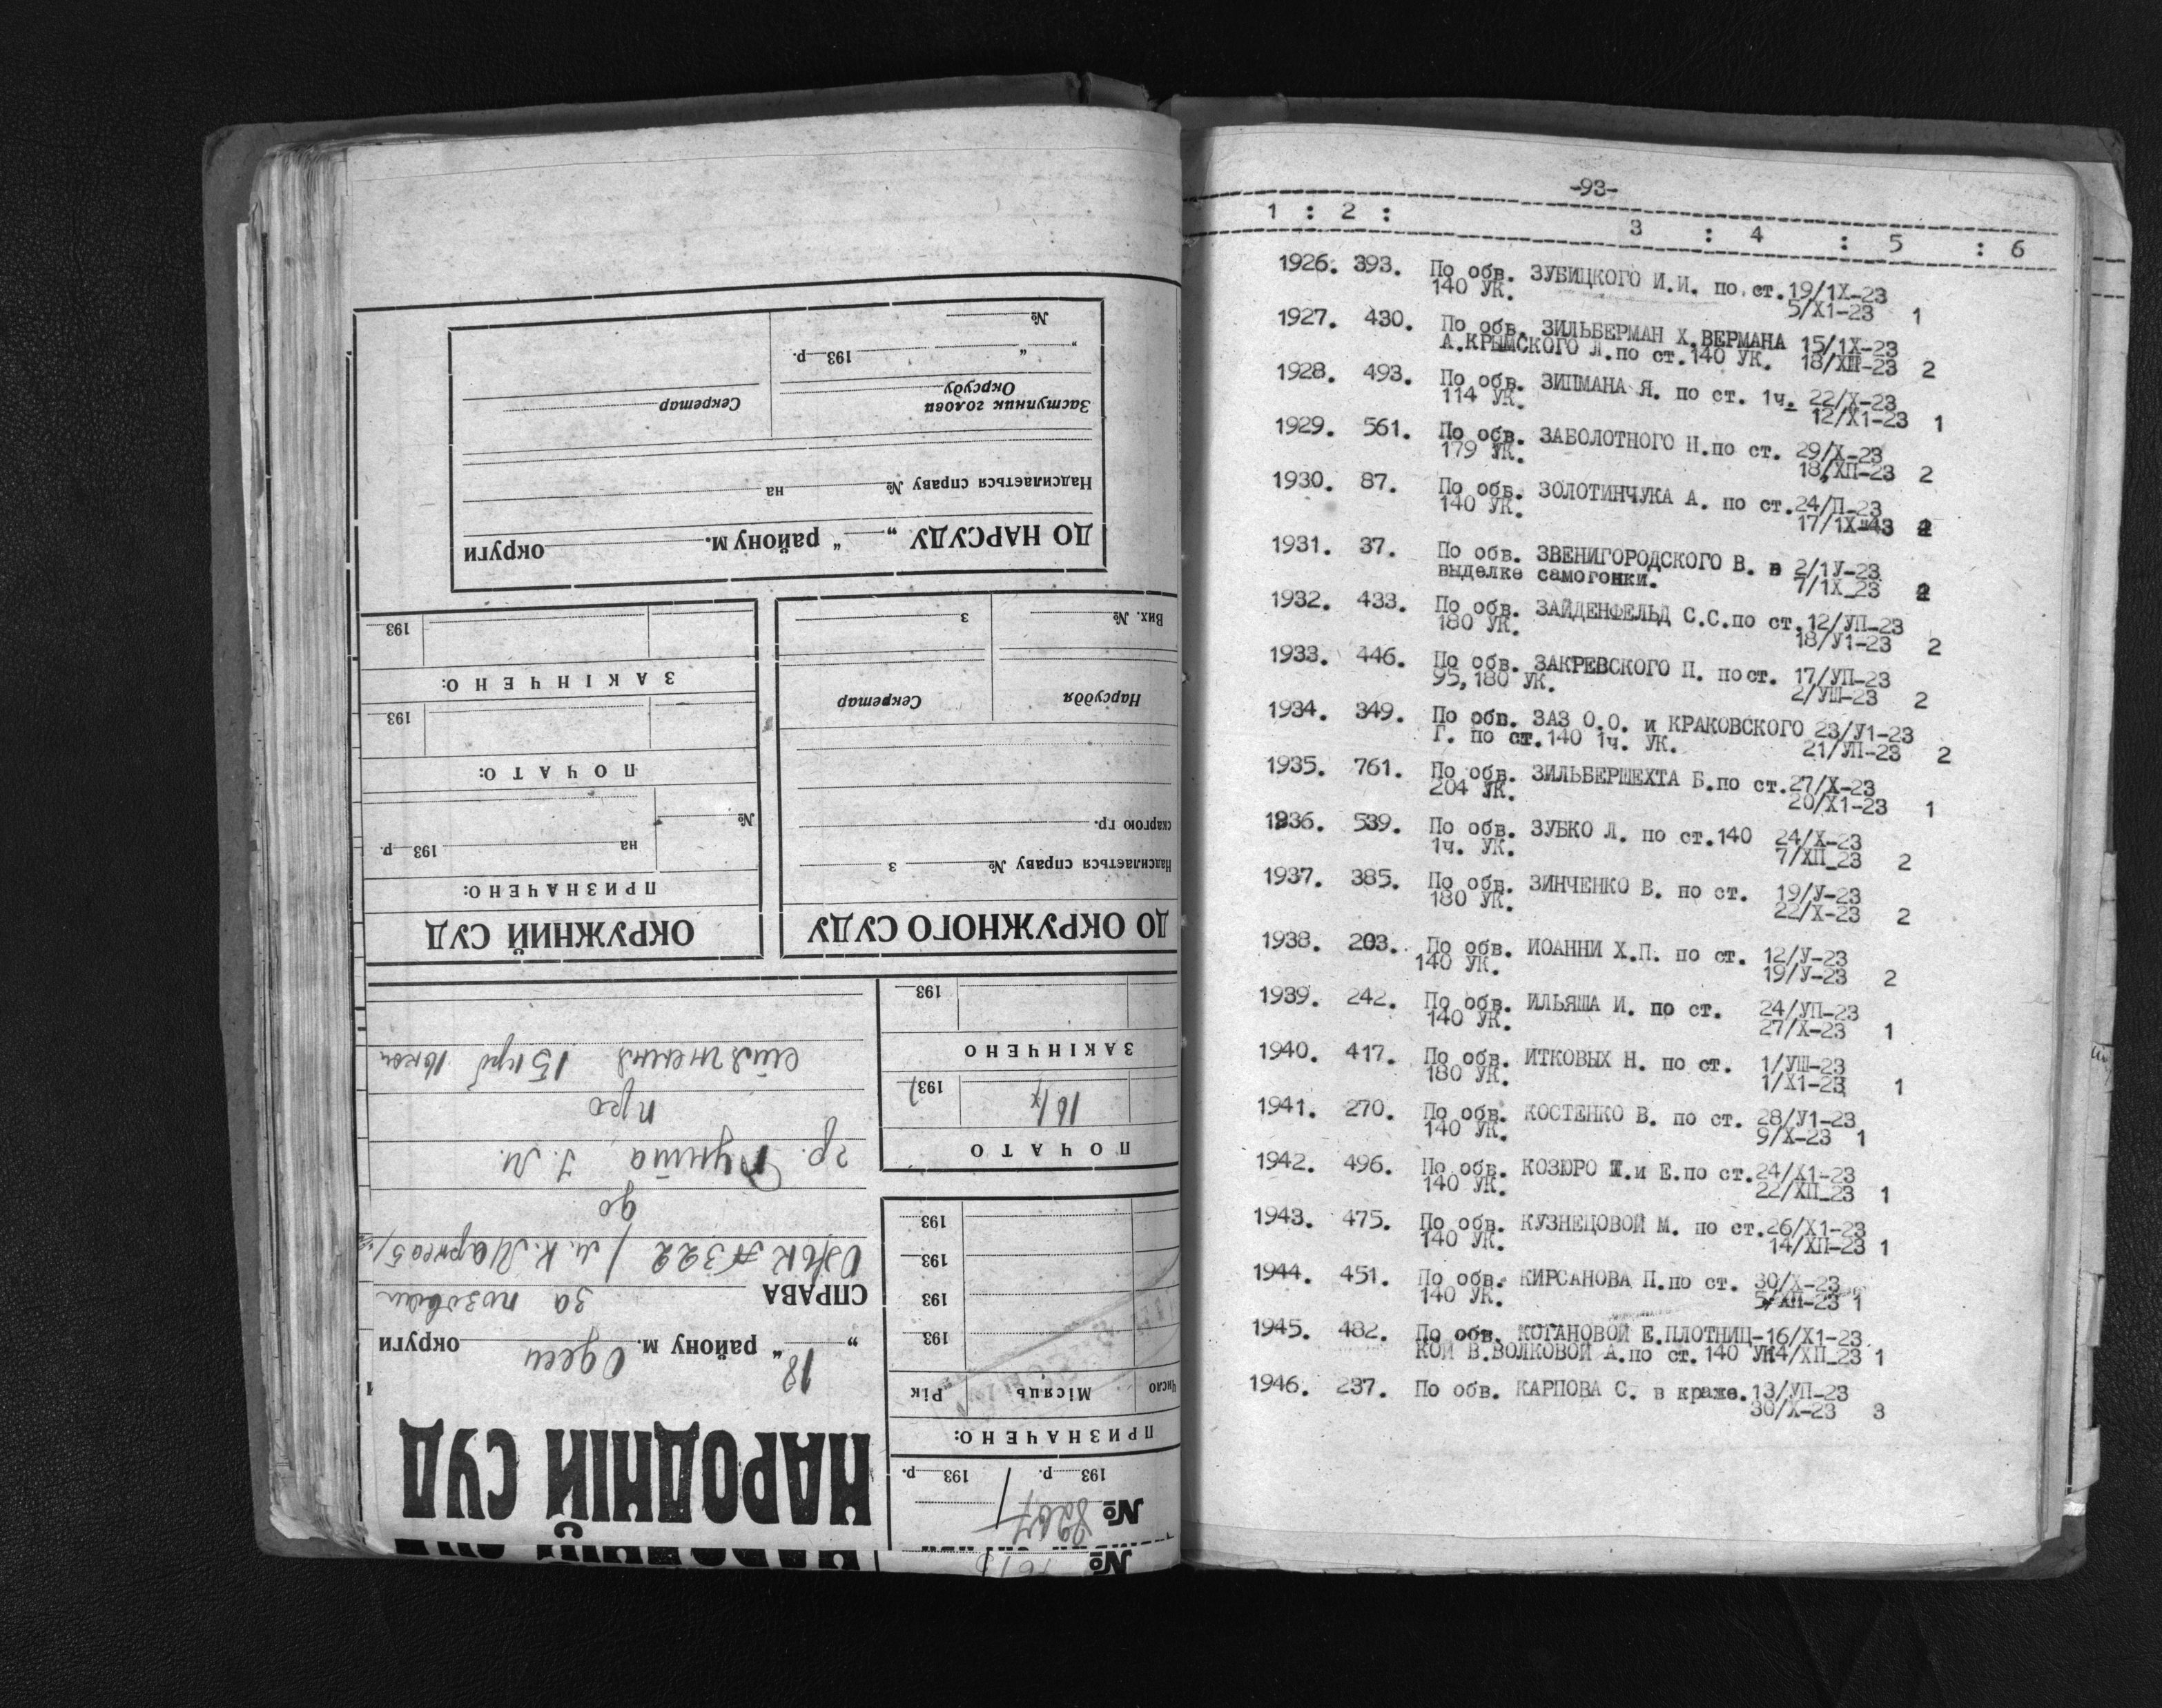 ДО НАРСУДУ „ “ району м. округи
Надсилається справу № на
Заступник голови
Окрсуду
Секретар
„ “ 193 р.
№
ДО ОКРУЖНОГО СУДУ
Надсилається справу № з
скаргою гр.
Нарсуддя
Секретар
Вих. № з
ОКРУЖНИЙ СУД
ПРИЗНАЧЕНО:
на 193 р.
№
ПОЧАТО:
193
ЗАКІНЧЕНО:
193
НАРОДНІЙ СУД
„18“ району м. Одеси округи
СПРАВА за позовом
до
гр. І. М.
про
15 крб
№ 8267
193 р. 193 р.
ПРИЗНАЧЕНО:
Число Місяць Рік
193
193
193
193
ПОЧАТО
16/X 193
ЗАКІНЧЕНО
193
№
-93-
1 : 2 : 3 : 4 : 5 : 6
1926. 393. По обв. ЗУБИЦКОГО И.И. по ст. 19/1Х-23
140 УК. 5/Х1-23 1
1927. 430. По обв. ЗИЛЬБЕРМАН Х.ВЕРМАНА 15/1Х-23
А.КРЫМСКОГО Л.по ст.140 УК. 18/ХП-23 2
1928. 493. По обв. ЗИПМАНА Я. по ст. 1ч. 22/Х-23
114 УК. 12/Х1-23 1
1929. 561. По обв. ЗАБОЛОТНОГО Н.по ст. 29/Х-23
179 УК. 18/ХП-23 2
1930. 87. По обв. ЗОЛОТИНЧУКА А. по ст.24/П-23
140 УК. 17/1Х-43 2
1931. 37. По обв. ЗВЕНИГОРОДСКОГО В. в 2/1У-23
выделке самогонки. 7/1Х_23 2
1932. 433. По обв. ЗАЙДЕНФЕЛЬД С.С.по ст.12/УП-23
180 УК. 18/У1-23 2
1933. 446. По обв. ЗАКРЕВСКОГО П. по ст. 17/УП-23
95,180 УК. 2/УШ-23 2
1934. 349. По обв. ЗАЗ О.О. и КРАКОВСКОГО 23/У1-23
Г. по ст.140 1ч. УК. 21/УП-23 2
1935. 761. По обв. ЗИЛЬБЕРШЕХТА Б.по ст.27/Х-23
204 УК. 20/Х1-23 1
1936. 539. По обв. ЗУБКО Л. по ст.140 24/Х-23
1ч. УК. 7/ХП_23 2
1937. 385. По обв. ЗИНЧЕНКО В. по ст. 19/У-23
180 УК. 22/Х-23 2
1938. 203. По обв. ИОАННИ Х.П. по ст. 12/У-23
140 УК. 19/У-23 2
1939. 242. По обв. ИЛЬЯША И. по ст. 24/УП-23
140 УК. 27/Х-23 1
1940. 417. По обв. ИТКОВЫХ Н. по ст. 1/УШ-23
180 УК. 1/Х1-23 1
1941. 270. По обв. КОСТЕНКО В. по ст. 28/У1-23
140 УК. 9/Х-23 1
1942. 496. По обв. КОЗЮРО и Е.по ст.24/Х1-23
140 УК. 22/ХП_23 1
1943. 475. По обв. КУЗНЕЦОВОЙ М. по ст.26/Х1-23
140 УК. 14/ХП-23 1
1944. 451. По обв. КИРСАНОВА П.по ст. 30/Х-23
140 УК. 5/ХП-23 1
1945. 482. По обв. КОГАНОВОЙ Е.ПЛОТНИЦ-16/Х1-23
КОЙ В.ВОЛКОВОЙ А.по ст.140 УК14/ХП_23 1
1946. 237. По обв. КАРПОВА С. в краже.13/УП-23
30/Х-23 3